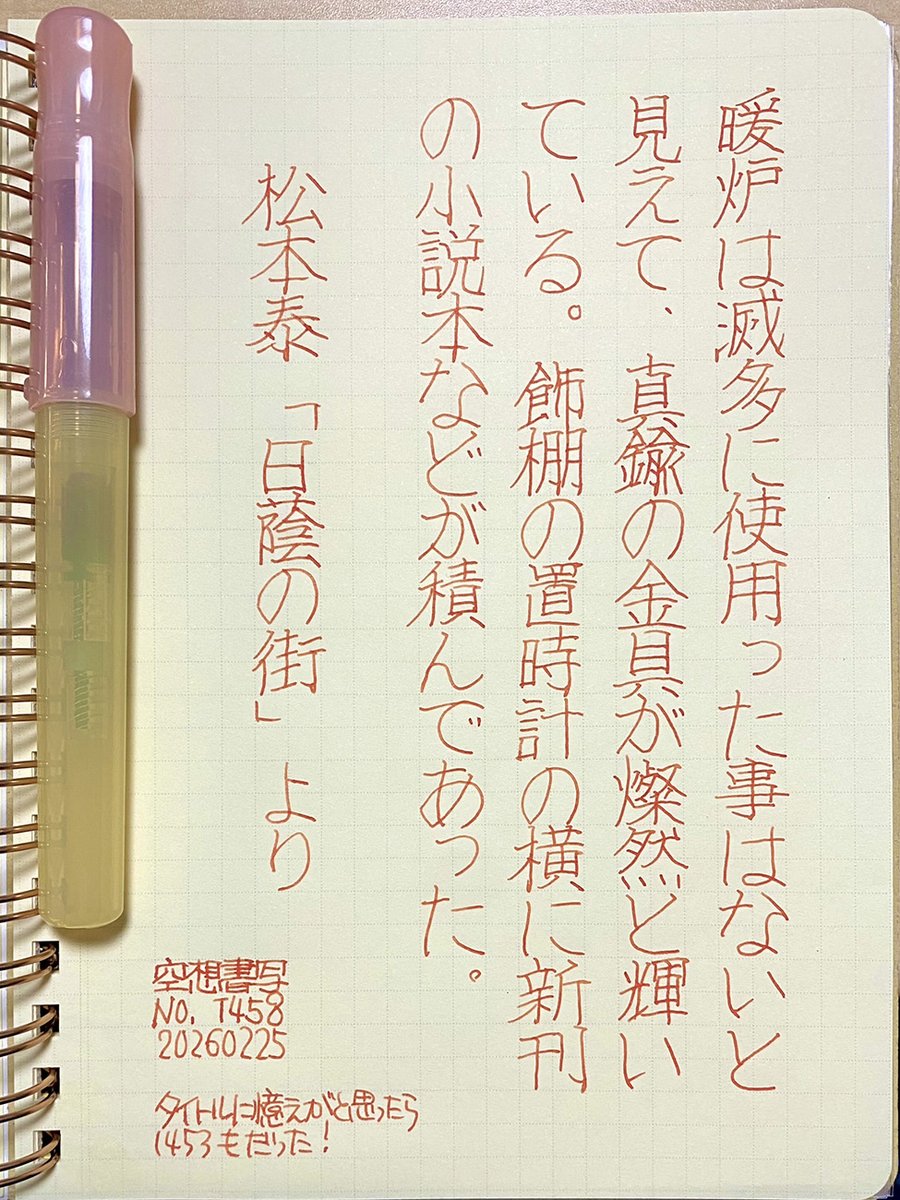 暖炉は滅多に使用った事はないと
見えて、真鍮の金具が燦然と輝い
ている。飾棚の置時計の横に新刊
の小説本などが積んであった。
松本泰「日蔭の街」より
空想書写
NO. 1458
20260225
タイトルに憶えがと思ったら
1453もだった!